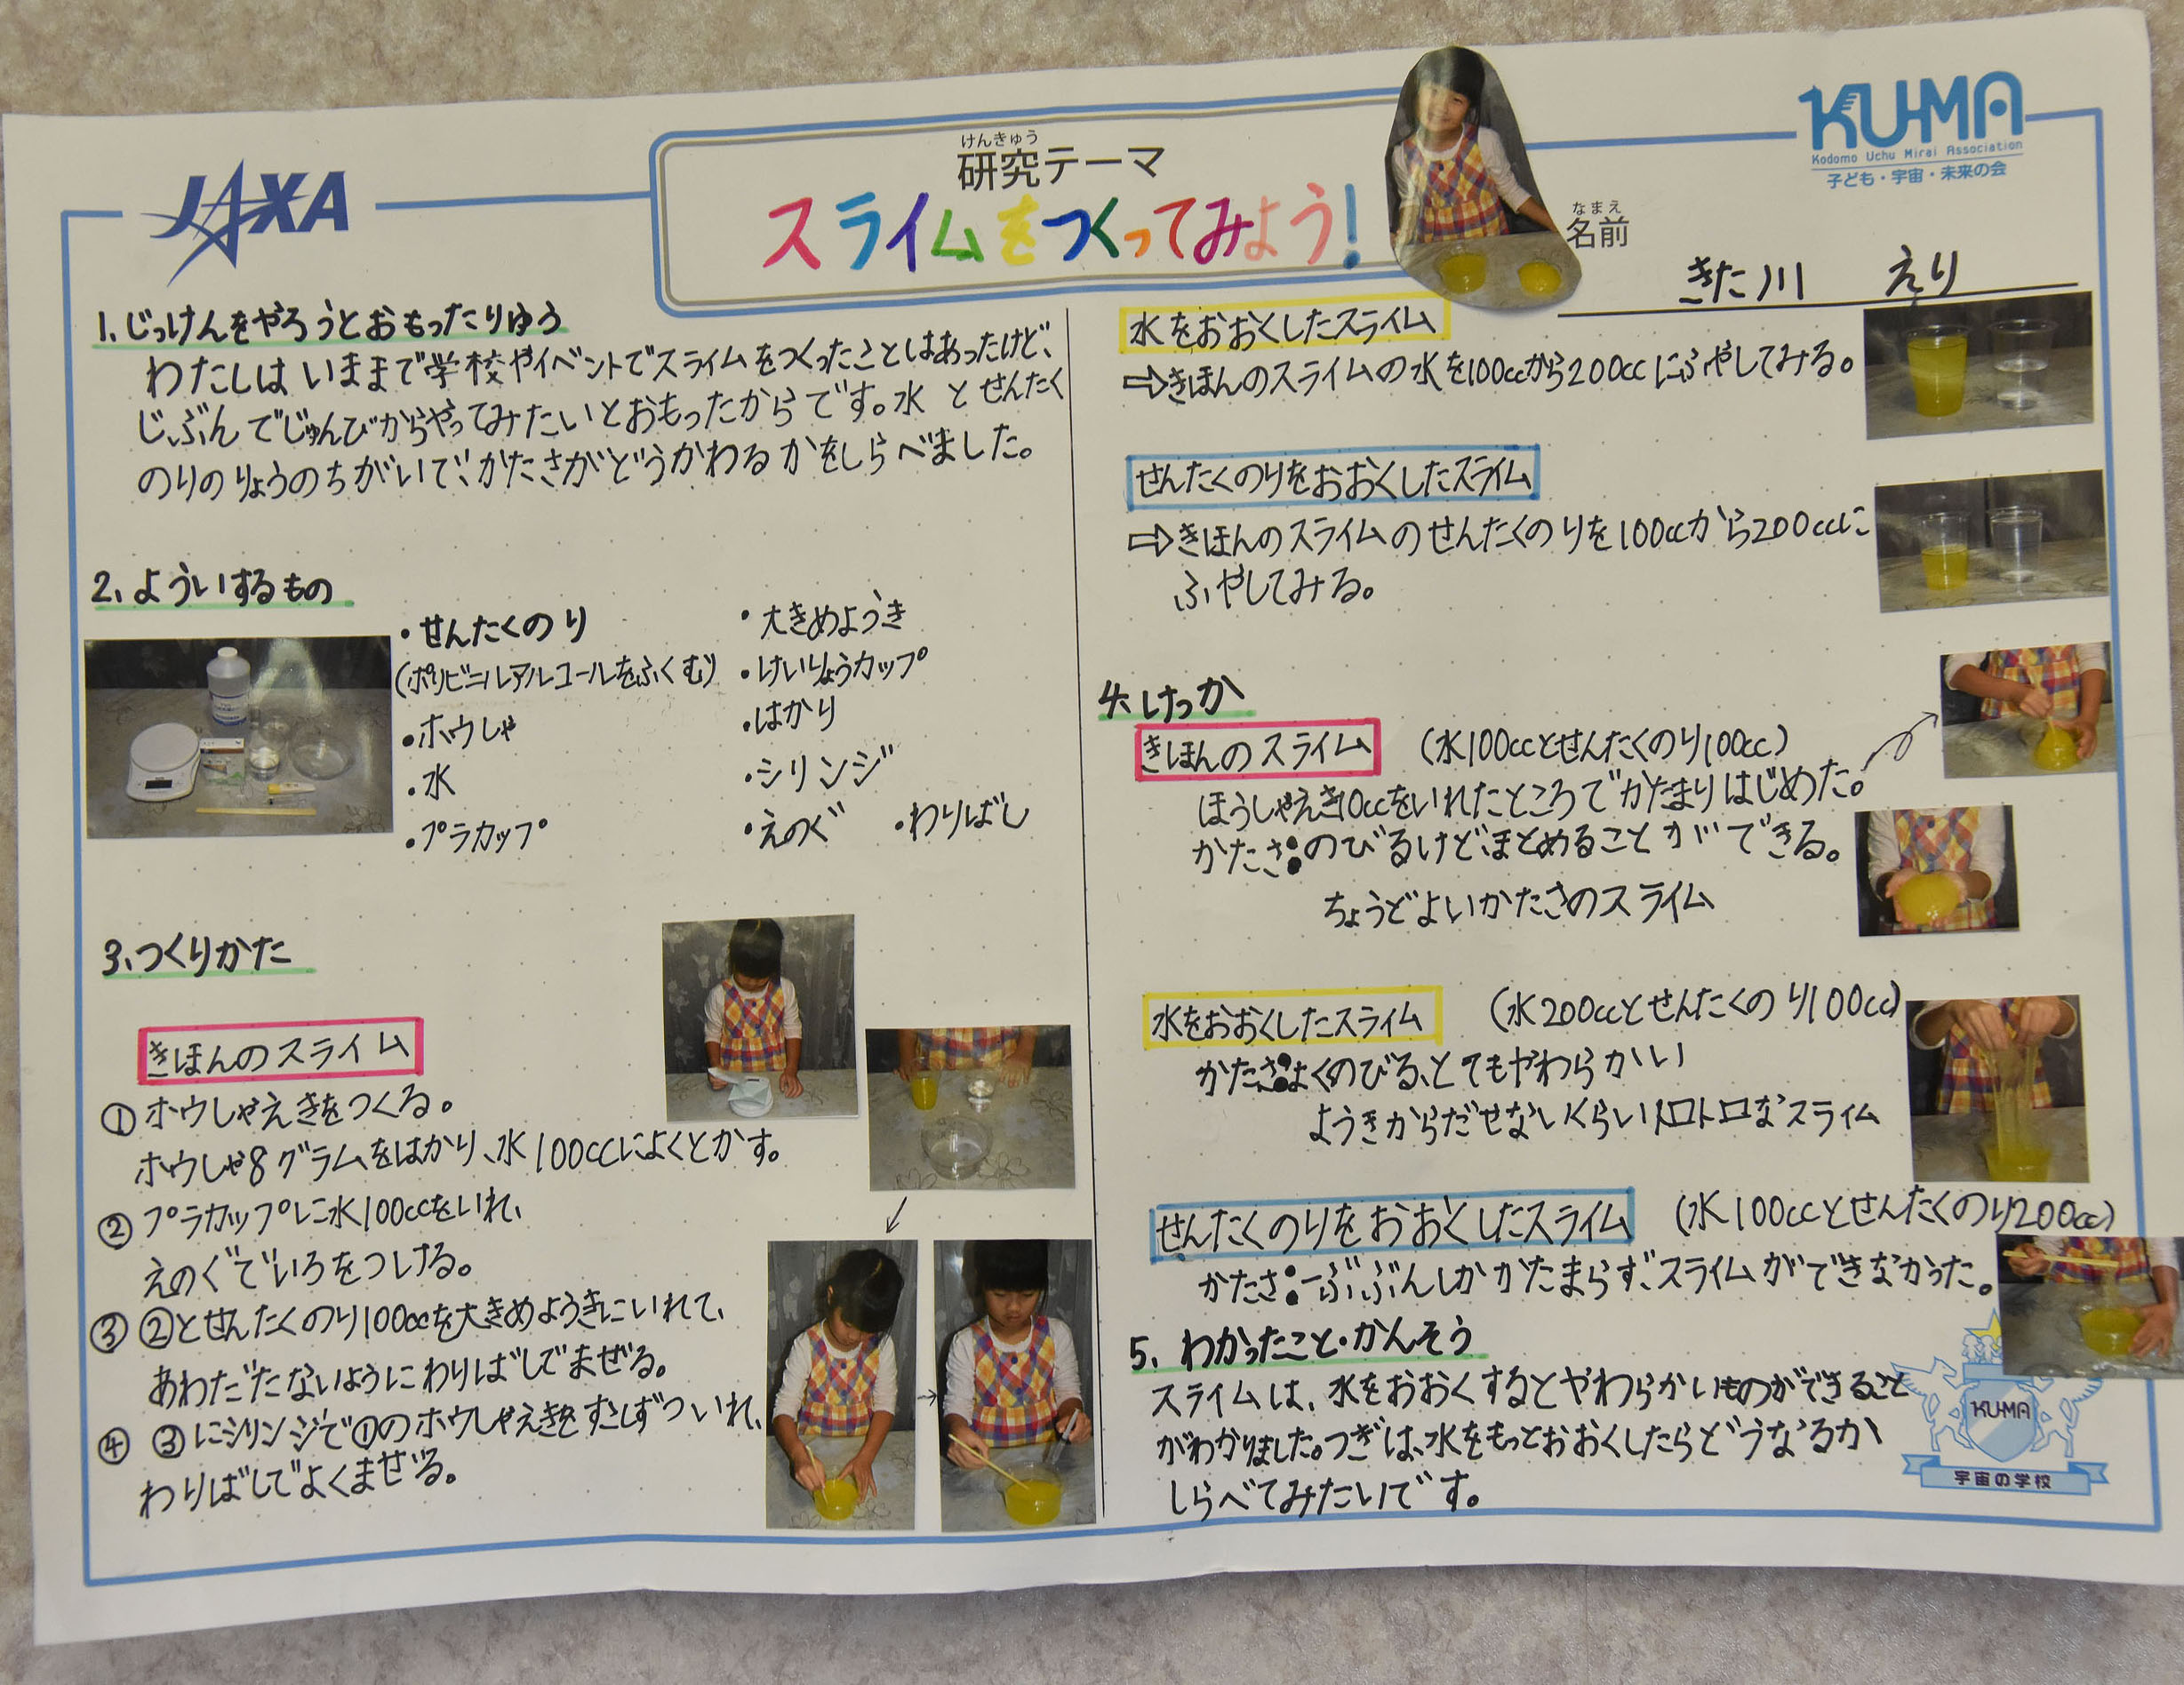 JAXA
けんきゅう
研究テーマ
スライムをつくってみよう!
KU-MA
Kodomo Uchu Mirai Association
子ども・宇宙・未来の会
なまえ
名前
きた川 えり
1、じっけんをやろうとおもったりゆう
わたしは いままで学校やイベントでスライムをつくったことはあったけど、
じぶんでじゅんびからやってみたいとおもったからです。水 と せんたく
のりのりょうのちがいで、かたさがどうかわるかをしらべました。
2、よういするもの
・せんたくのり
(ポリビニルアルコールをふくむ)
・ホウしゃ
・水
・プラカップ
・大きめようき
・けいりょうカップ
・はかり
・シリンジ
・えのぐ ・わりばし
3、つくりかた
きほんのスライム
① ホウしゃえきをつくる。
ホウしゃ8グラムをはかり、水100ccによくとかす。
② プラカップに水100ccをいれ、
えのぐでいろをつける。
③ ②とせんたくのり100ccを大きめようきにいれて、
あわだたないようにわりばしでまぜる。
④ ③にシリンジで①のホウしゃえきをすこしずついれ、
わりばしでよくまぜる。
水をおおくしたスライム
⇨きほんのスライムの水を100ccから200ccにふやしてみる。
せんたくのりをおおくしたスライム
⇨きほんのスライムのせんたくのりを100ccから200ccに
ふやしてみる。
4、けっか
きほんのスライム (水100ccとせんたくのり100cc)
ほうしゃえき10ccをいれたところでかたまりはじめた。
かたさ:のびるけどまとめることができる。
ちょうどよいかたさのスライム
水をおおくしたスライム (水200ccとせんたくのり100cc)
かたさ:よくのびる、とてもやわらかい
ようきからだせないくらいトロトロなスライム
せんたくのりをおおくしたスライム (水100ccとせんたくのり200cc)
かたさ:一ぶぶんしかかたまらず、スライムができなかった。
5、わかったこと・かんそう
スライムは、水をおおくするとやわらかいものができること
がわかりました。つぎは、水をもっとおおくしたらどうなるか
しらべてみたいです。
KU-MA
宇宙の学校